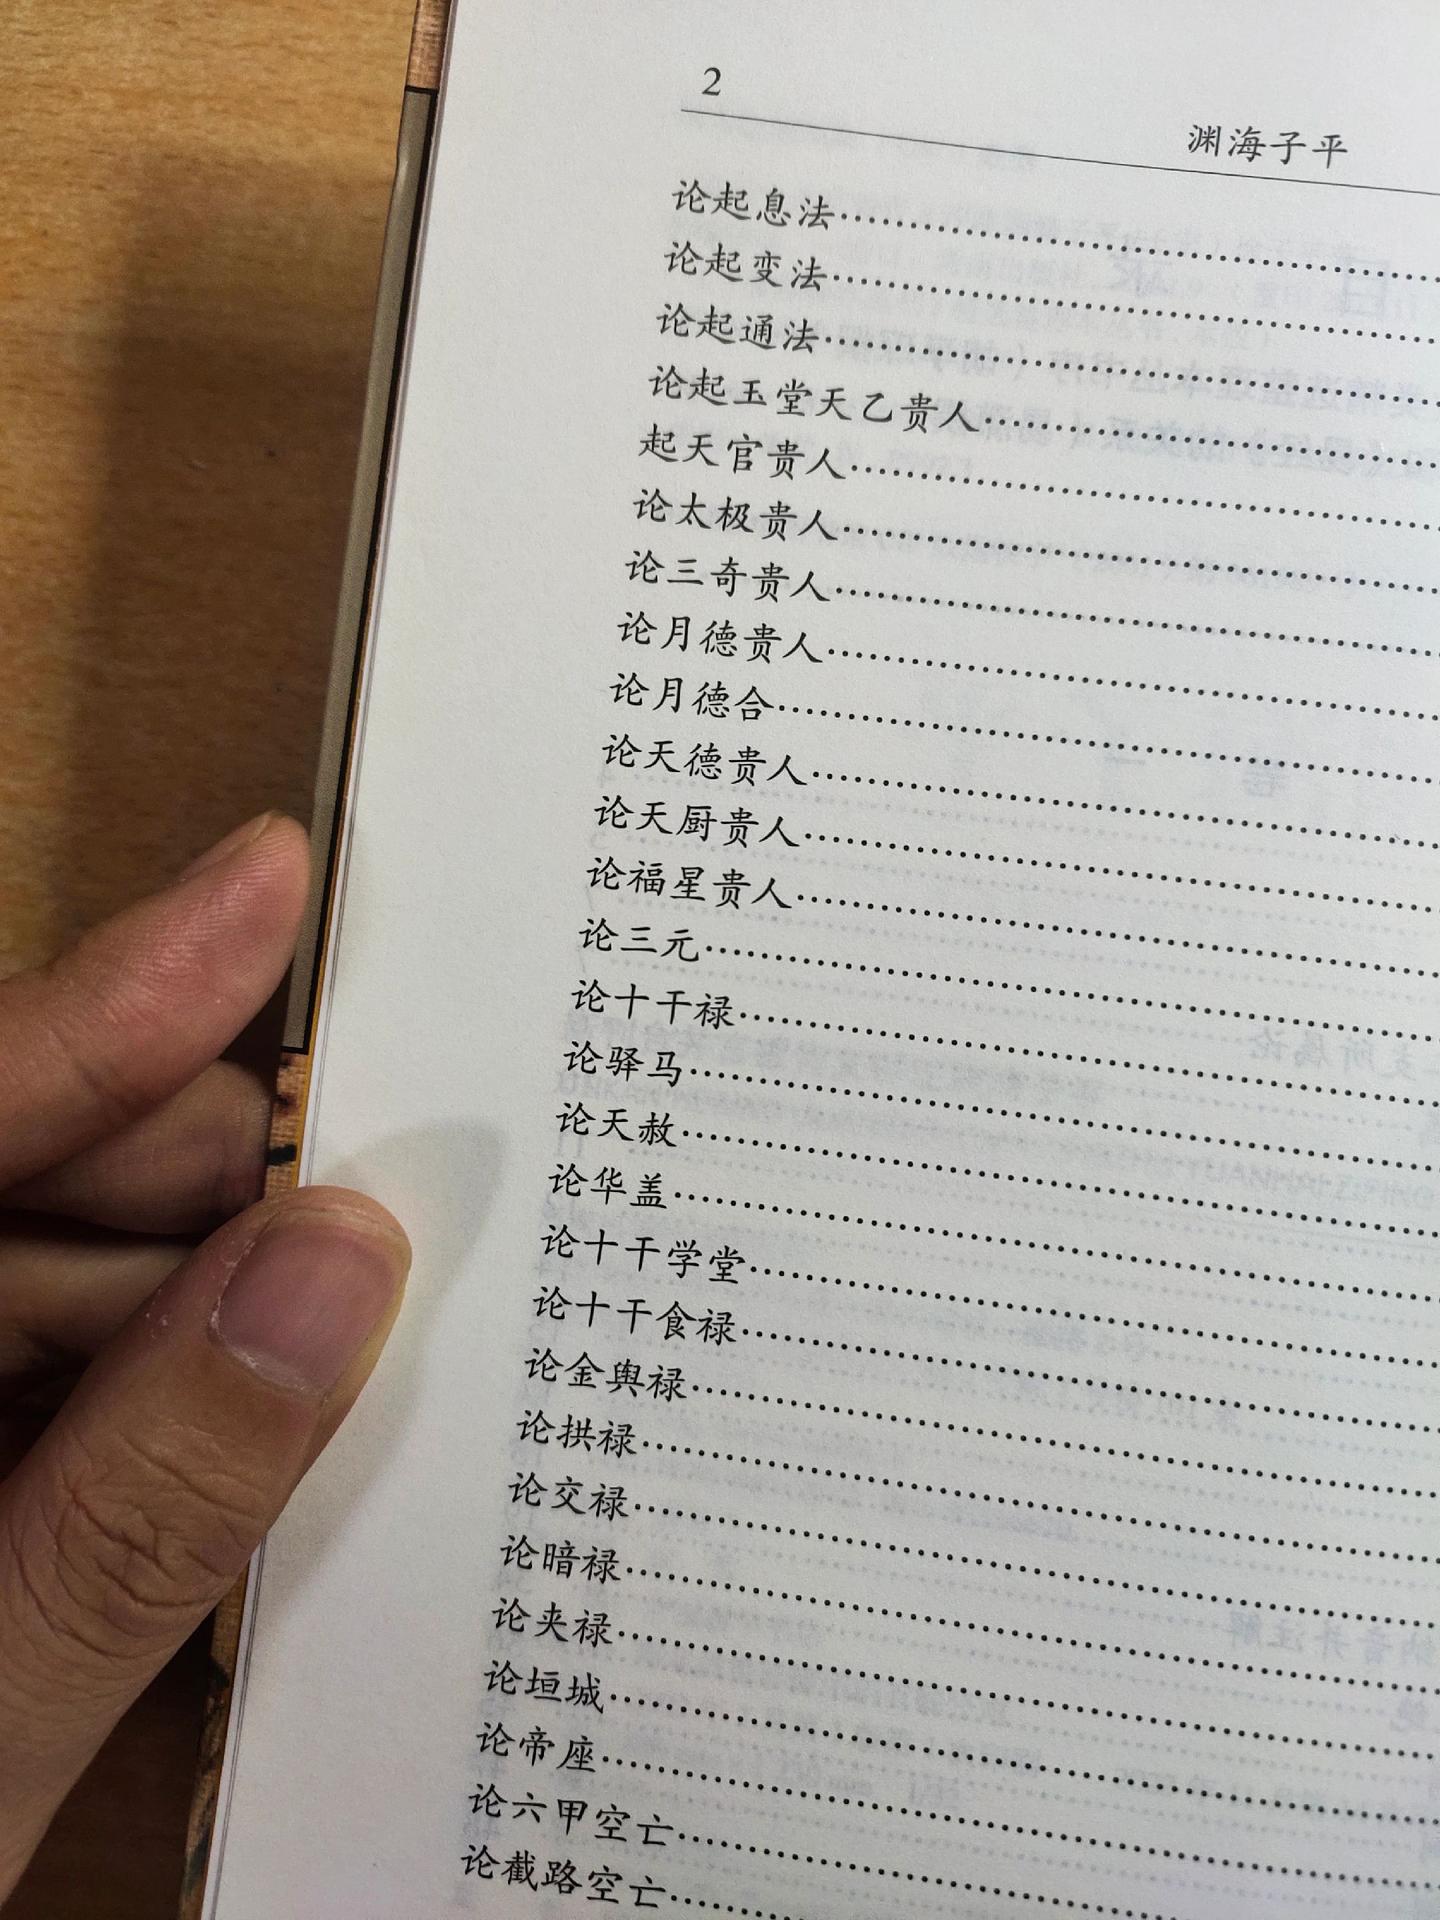 2
渊海子平
论起息法
论起变法
论起通法
论起玉堂天乙贵人
起天官贵人
论太极贵人
论三奇贵人
论月德贵人
论月德合
论天德贵人
论天厨贵人
论福星贵人
论三元
论十干禄
论驿马
论天赦
论华盖
论十干学堂
论十干食禄
论金舆禄
论拱禄
论交禄
论暗禄
论夹禄
论垣城
论帝座
论六甲空亡
论截路空亡